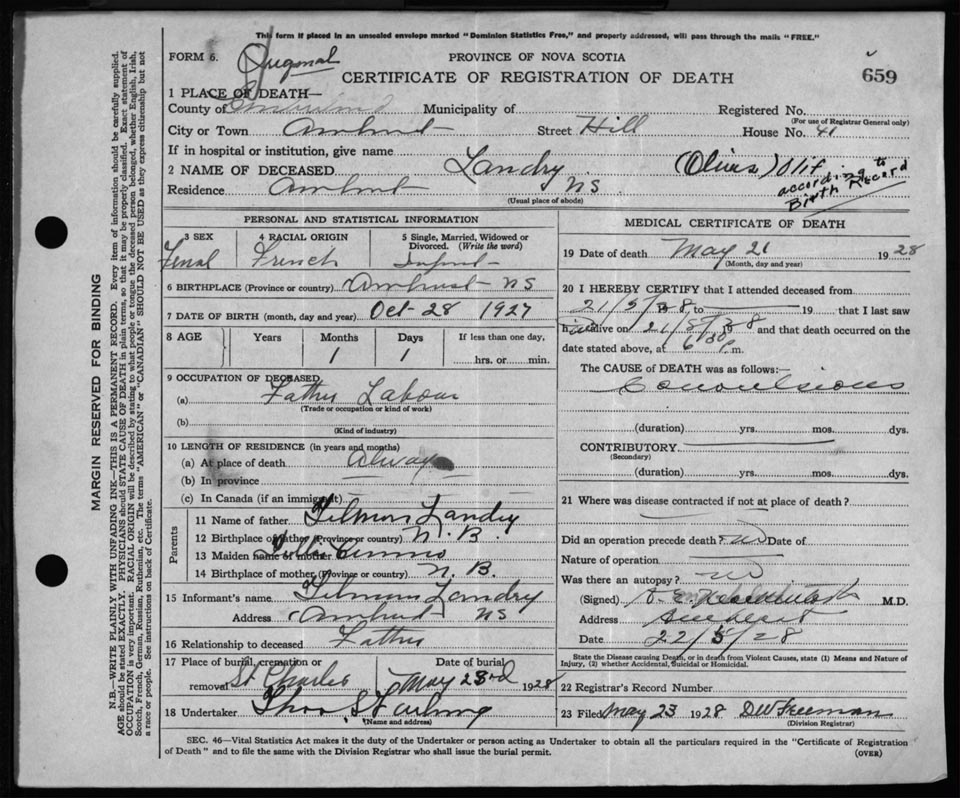 This form if placed in an unsealed envelope marked "Dominion Statistics Free," and properly addressed, will pass through the mails "FREE."
FORM 6. Original PROVINCE OF NOVA SCOTIA
CERTIFICATE OF REGISTRATION OF DEATH 659
1 PLACE OF DEATH—
County of Cumberland Municipality of Registered No.
(For use of Registrar General only)
City or Town Amherst Street Hill House No. 41
If in hospital or institution, give name
2 NAME OF DECEASED Landry (Olive) Olif according to Birth Record
Residence Amherst NS
(Usual place of abode)
PERSONAL AND STATISTICAL INFORMATION
3 SEX 4 RACIAL ORIGIN 5 Single, Married, Widowed or Divorced. (Write the word)
Femal French Infant
6 BIRTHPLACE (Province or country) Amherst NS
7 DATE OF BIRTH (month, day and year) Oct 28 1927
8 AGE Years Months Days If less than one day,
1 1 hrs. or min.
9 OCCUPATION OF DECEASED
(a) Father Labour
(Trade or occupation or kind of work)
(b)
(Kind of industry)
10 LENGTH OF RESIDENCE (in years and months)
(a) At place of death always
(b) In province
(c) In Canada (if an immigrant)
Parents
11 Name of father Landry
12 Birthplace of father (Province or country) N. B.
13 Maiden name of mother
14 Birthplace of mother (Province or country) N. B.
15 Informant's name Landry
Address Amherst NS
16 Relationship to deceased Father
17 Place of burial, cremation or removal St Charles Date of burial May 23rd 1928
18 Undertaker Thos.
(Name and address)
MEDICAL CERTIFICATE OF DEATH
19 Date of death May 21 1928
(Month, day and year)
20 I HEREBY CERTIFY that I attended deceased from
21/5/28, to 19 that I last saw
alive on 21/5/28 and that death occurred on
date stated above, at 6.30 P.m.
The CAUSE of DEATH was as follows:
Convulsions
(duration) yrs. mos. dys.
CONTRIBUTORY
(Secondary)
(duration) yrs. mos. dys.
21 Where was disease contracted if not at place of death?
Did an operation precede death? no Date of
Nature of operation
Was there an autopsy? no
(Signed) M.D.
Address Amherst
Date 22/5/28
State the Disease causing Death, or in death from Violent Causes, state (1) Means and Nature of Injury, (2) whether Accidental, Suicidal or Homicidal.
22 Registrar's Record Number
23 Filed May 23 1928 DW Freeman
(Division Registrar)
SEC. 46—Vital Statistics Act makes it the duty of the Undertaker or person acting as Undertaker to obtain all the particulars required in the "Certificate of Registration
of Death" and to file the same with the Division Registrar who shall issue the burial permit. (OVER)
MARGIN RESERVED FOR BINDING
N.B.—WRITE PLAINLY WITH UNFADING INK—THIS IS A PERMANENT RECORD. Every item of information should be carefully supplied.
AGE should be stated EXACTLY. PHYSICIANS should STATE CAUSE OF DEATH in plain terms, so that it may be properly classified. Exact statement of
OCCUPATION is very important. RACIAL ORIGIN will be described by stating to what people or tongue the deceased person belonged, whether English, Irish,
Scotch, French, German, Russian, Ruthenian, etc. The terms "AMERICAN" or "CANADIAN" SHOULD NOT BE USED as they express citizenship but not
a race or people. See instructions on back of Certificate.